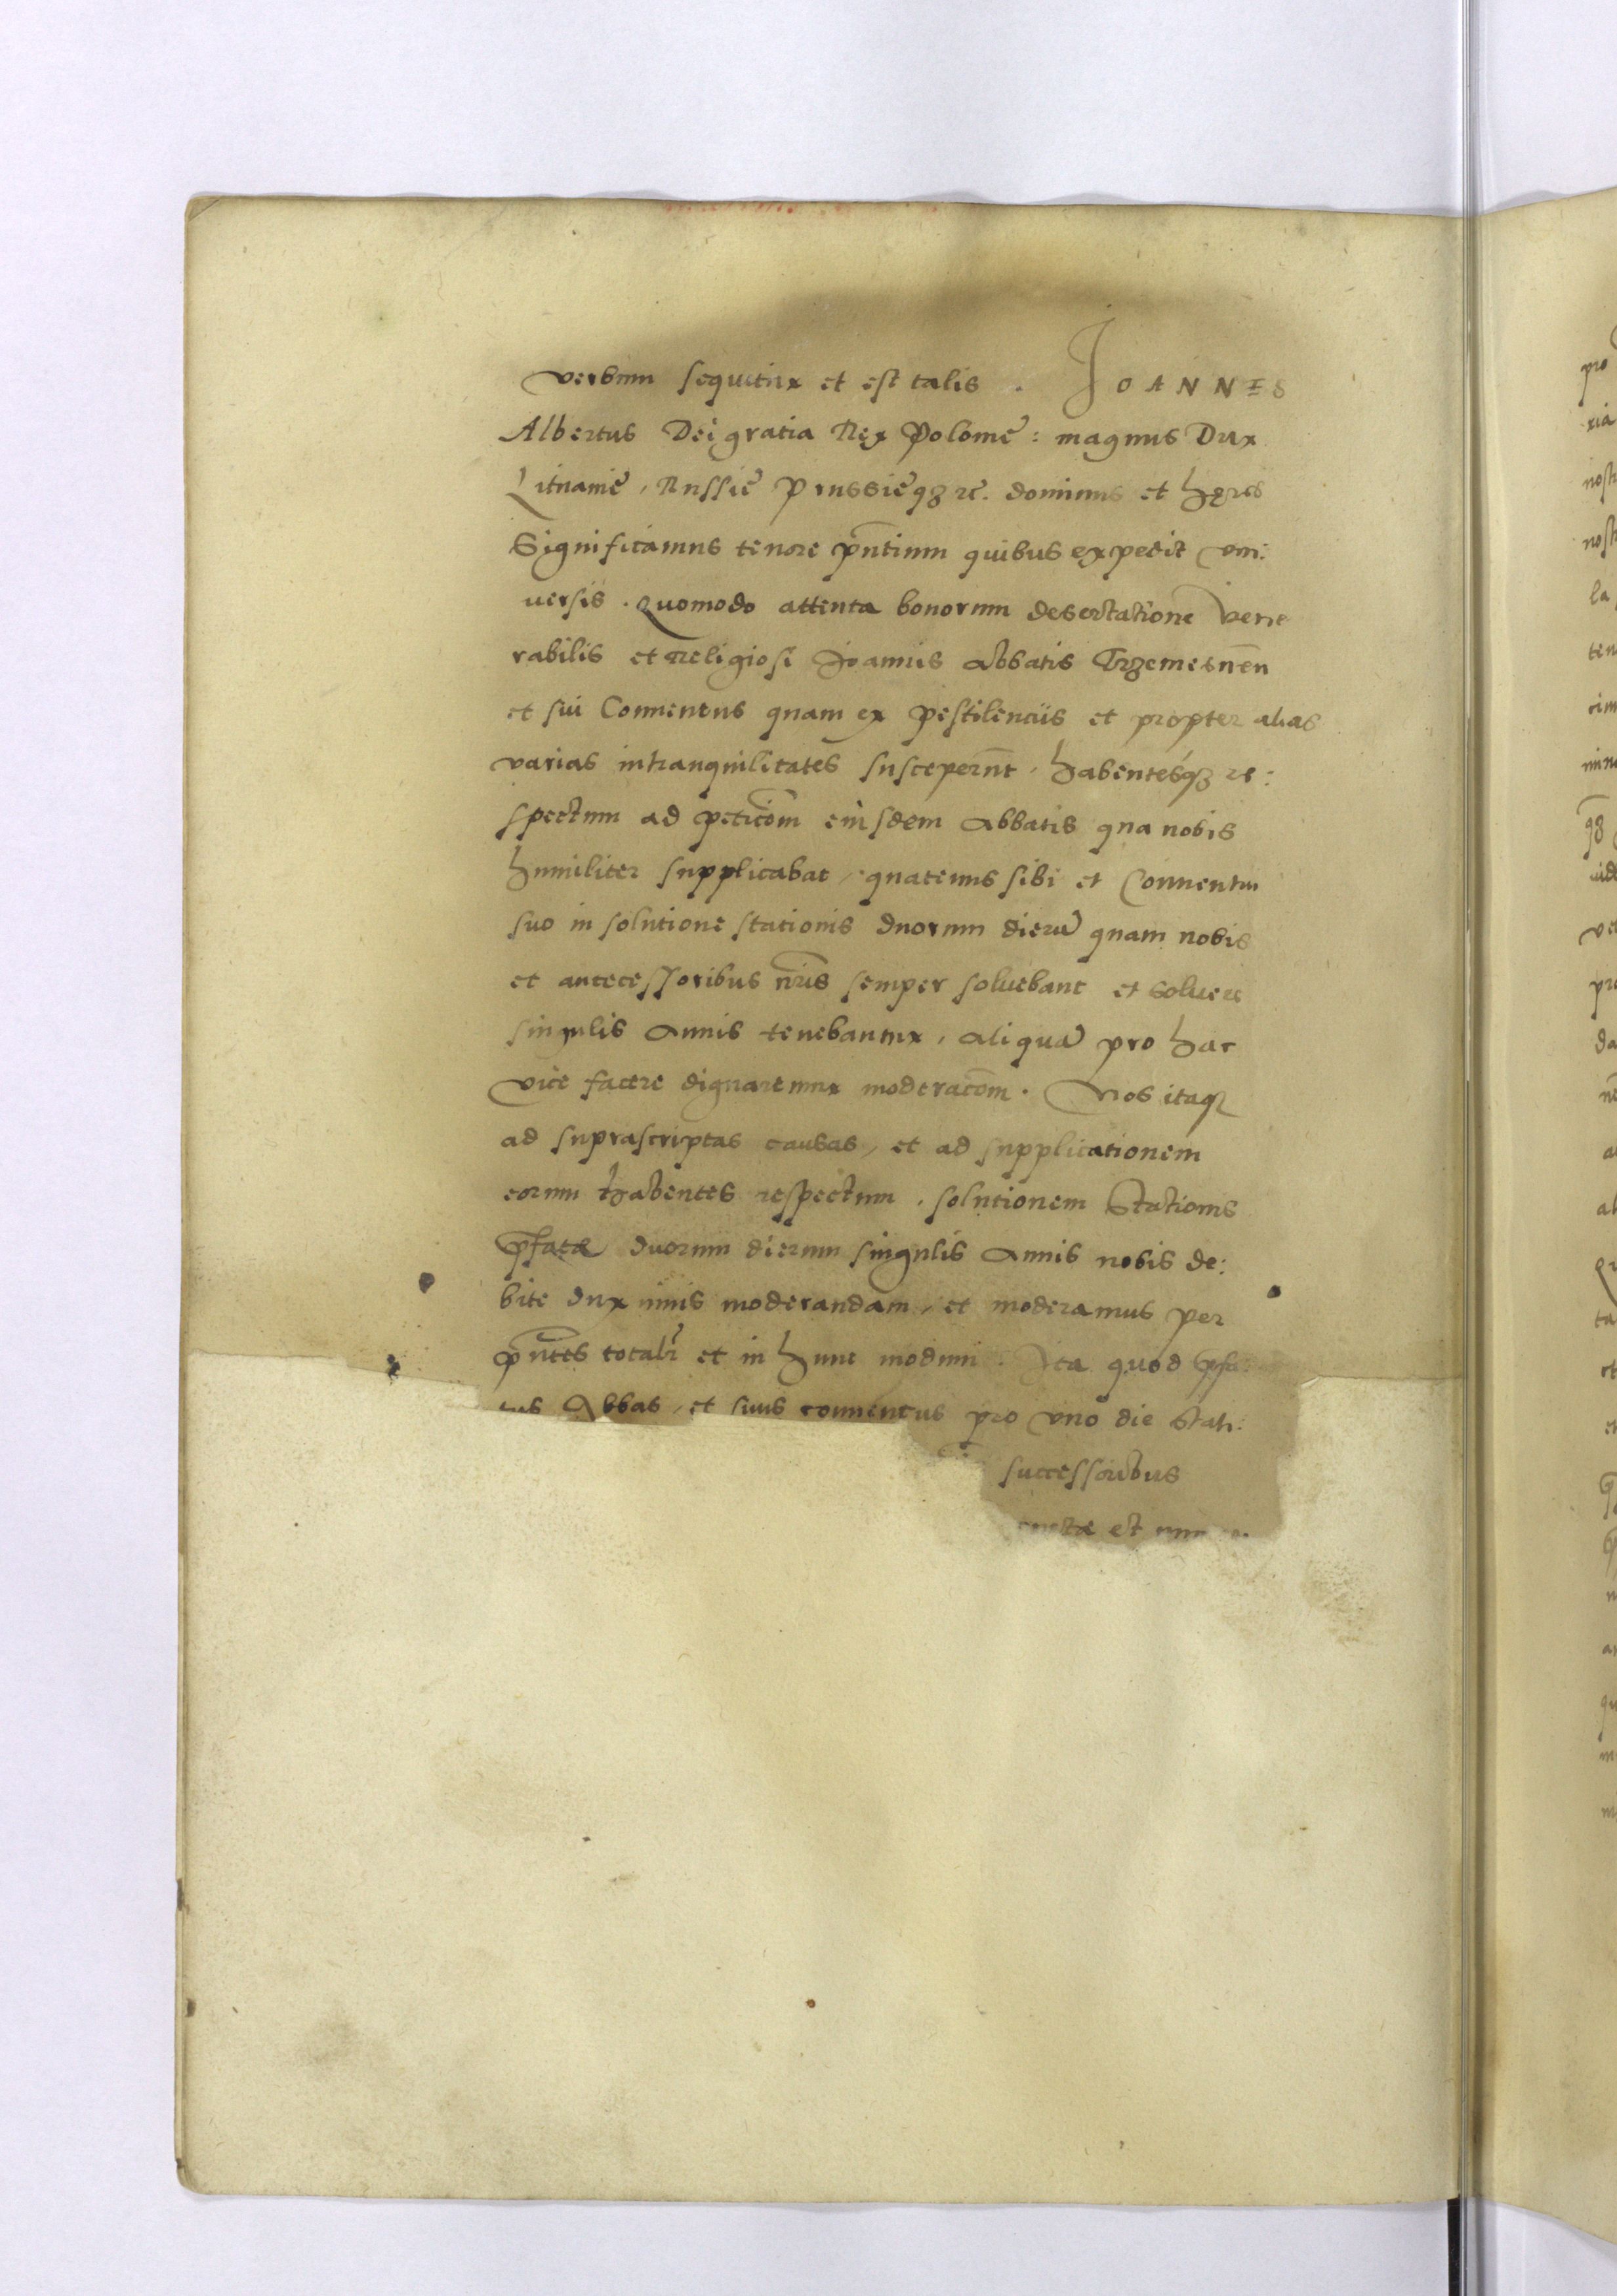 verbum sequitur et est talis . IOANNES
Albertus Dei gratia Rex Polonie : magnus Dux
Lituanie , Russie Prussieqꝫ ꝛc̃. dominus et hęres
Significamus tenore pñtium quibus expedit vni:
uersis . Quomodo attenta bonorum desertatione Vene
rabilis et Religiosi Joannis Abbatis Trzemesnẽn
et sui Conuentus quam ex pestilenciis et propter alias
varias intranquilitates susceperũt , habentesqꝫ re:
spectum ad peticõm eiusdem Abbatis qua nobis
humiliter supplicabat , quatenus sibi et Conuentui
suo in solutione stationis duorum dierũ quam nobis
et antecessoribus nr̃is semper soluebant et soluere
singulis Annis tenebantur , aliquã pro hac
vice facere dignaremur moderacõm . Nos itaqꝫ
ad suprascriptas causas , et ad supplicationem
eorum habentes respectum , solutionem Stationis
p̃fatæ duorum dierum singulis Annis nobis de:
bite duximus moderandam , et moderamus per
p̃ntes totalr̃ et in hunc modum . Ita quod p̃fa:
tus Abbas , et suus conuentus pro vno die Stati:
successoribus
et